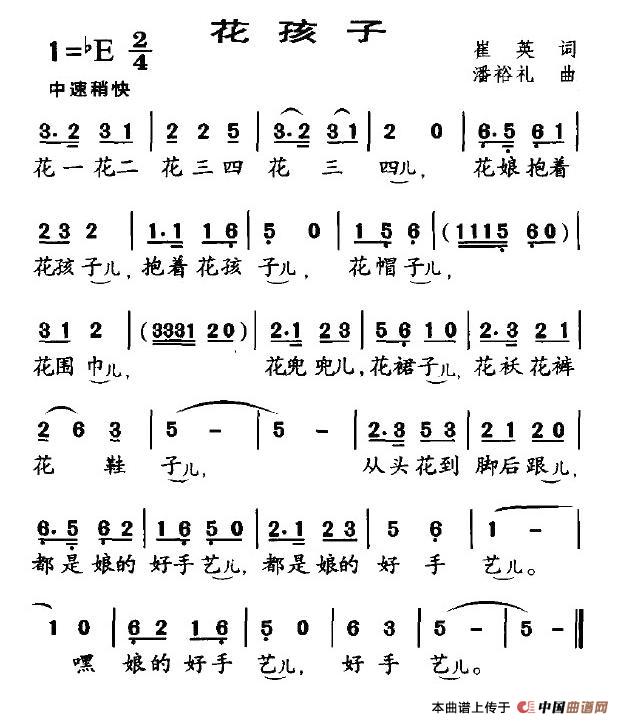 花孩子
1=♭E 2/4
崔英 词
中速稍快
潘裕礼 曲
3·2 3 1 | 2 2 5 | 3·2 3 1 | 2 0 | 6·5 6 1 |
花一花二 花三四 花 三 四儿， 花娘抱着
2 3 2 | 1·1 1 6 | 5 0 | 1 5 6 | (1115 6 0) |
花孩子儿，抱着花孩 子儿， 花帽子儿，
3 1 2 | (3331 2 0) | 2·1 2 3 | 5 6 1 0 | 2·3 2 1 |
花围巾儿， 花兜兜儿，花裙子儿，花袄花裤
2 6 3 | 5 - | 5 - | 2·3 5 3 | 2 1 2 0 |
花 鞋 子儿， 从头花到 脚后跟儿，
6·5 6 2 | 1 6 5 0 | 2·1 2 3 | 5 6 | 1 - |
都是娘的好手艺儿，都是娘的好 手 艺儿。
1 0 | 6 2 1 6 | 5 0 | 6 3 | 5 - | 5 - ‖
嘿 娘的好手 艺儿， 好手 艺儿。
本曲谱上传于 中国曲谱网